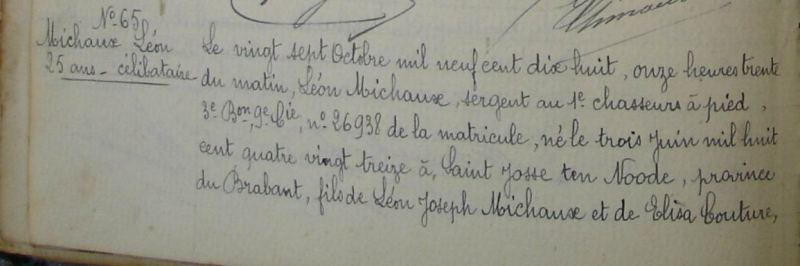 N° 65
Michaux Léon
25 ans - célibataire
Le vingt sept Octobre mil neuf cent dix huit, onze heures trente
du matin, Léon Michaux, sergent au 1e chasseurs à pied,
3e Bon, 9e Cie, n° 26938 de la matricule, né le trois Juin mil huit
cent quatre vingt treize à, Saint Josse ten Noode, province
du Brabant, fils de Léon Joseph Michaux et de Elisa Couture,